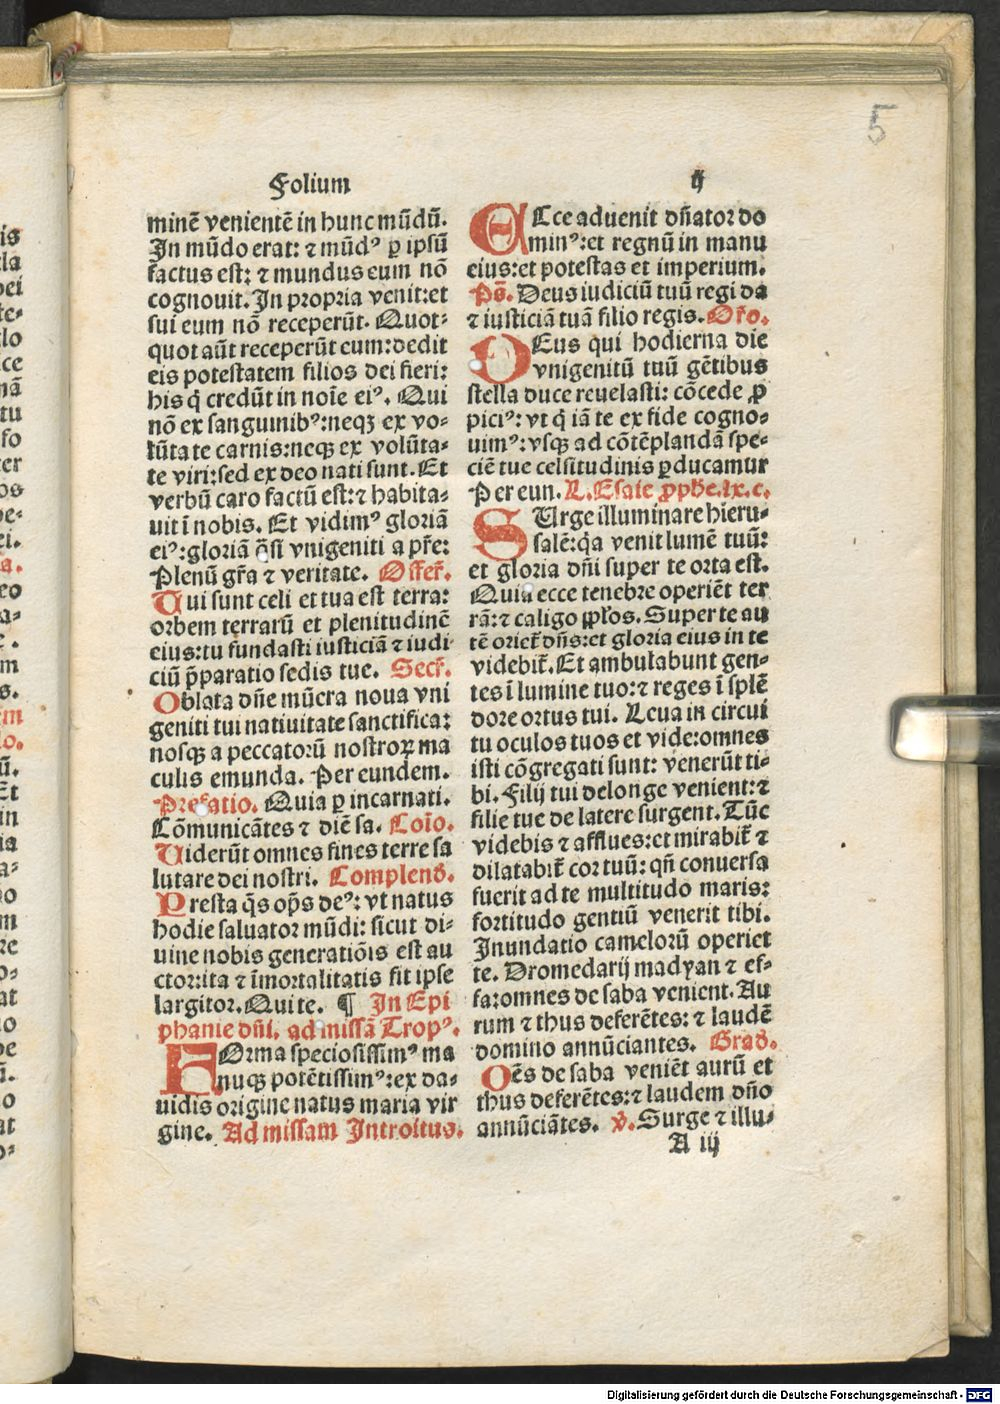 5
Folium ij
minē venientē in hunc mūdū.
In mūdo erat: ⁊ mūdꝰ ꝑ ipsū
factus est: ⁊ mundus eum nō
cognouit. In propria venit: et
sui eum nō receperūt. Quot-
quot aūt receperūt eum: dedit
eis potestatem filios dei fieri:
his q̄ credūt in noīe eiꝰ. Qui
nō ex sanguinibꝰ: neqꝫ ex vo-
lūtate carnis: neqꝫ ex volūta-
te viri: sed ex deo nati sunt. Et
verbū caro factū est: ⁊ habita-
uit ī nobis. Et vidimꝰ gloriā
eiꝰ: gloriā q̄si vnigeniti a pr̄e:
Plenū gr̄a ⁊ veritate. Offer̄.
Tui sunt celi et tua est terra:
orbem terrarū et plenitudinē
eius: tu fundasti iusticiā ⁊ iudi
ciū p̄paratio sedis tue. Secr̄.
Oblata dn̄e mūera noua vni
geniti tui natiuitate sanctifica:
nosqꝫ a peccatorū nostroꝝ ma
culis emunda. Per eundem.
Prefatio. Quia ꝑ incarnati.
Cōmunicātes ⁊ diē sa. Coīo.
Uiderūt omnes fines terre sa
lutare dei nostri. Complend̄.
Presta q̄s op̄s deꝰ: vt natus
hodie saluator mūdi: sicut di-
uine nobis generatiōis est au
ctor: ita ⁊ īmortalitatis sit ipse
largitor. Qui te. ¶ In Epi
phanie dn̄i. ad missā Tropꝰ.
FOrma speciosissimꝰ ma
nuqꝫ potētissimꝰ: ex da-
uidis origine natus maria vir
gine. Ad missam Introitus.
ECce aduenit dn̄ator do
minꝰ: et regnū in manu
eius: et potestas et imperium.
Ps̄. Deus iudiciū tuū regi da
⁊ iusticiā tuā filio regis. Or̄o.
DEus qui hodierna die
vnigenitū tuū gētibus
stella duce reuelasti: cōcede ꝓ
piciꝰ: vt q̄ iā te ex fide cogno-
uimꝰ: vsqꝫ ad cōtēplandā spe-
ciē tue celsitudinis ꝑducamur
Per eun. L. Esaie ꝓph̄e. lx. c.
SUrge illuminare hieru-
salē: q̄a venit lumē tuū:
et gloria dn̄i super te orta est.
Quia ecce tenebre operiēt ter
rā: ⁊ caligo pp̄los. Super te au
tē oriet̄ dn̄s: et gloria eius in te
videbit̄. Et ambulabunt gen-
tes ī lumine tuo: ⁊ reges ī splē
dore ortus tui. Leua in circui
tu oculos tuos et vide: omnes
isti cōgregati sunt: venerūt ti-
bi. Filij tui de longe venient: ⁊
filie tue de latere surgent. Tūc
videbis ⁊ afflues: et mirabit̄ ⁊
dilatabit̄ cor tuū: qn̄ conuersa
fuerit ad te multitudo maris:
fortitudo gentiū venerit tibi.
Inundatio camelorū operiet
te. Dromedarij madyan ⁊ ef-
fa: omnes de saba venient. Au
rum ⁊ thus deferētes: ⁊ laudē
domino annūciantes. Grad̄.
Oēs de saba veniēt aurū et
thus deferētes: ⁊ laudem dn̄o
annūciātes. v̄. Surge ⁊ illu-
A iij
Digitalisierung gefördert durch die Deutsche Forschungsgemeinschaft - DFG